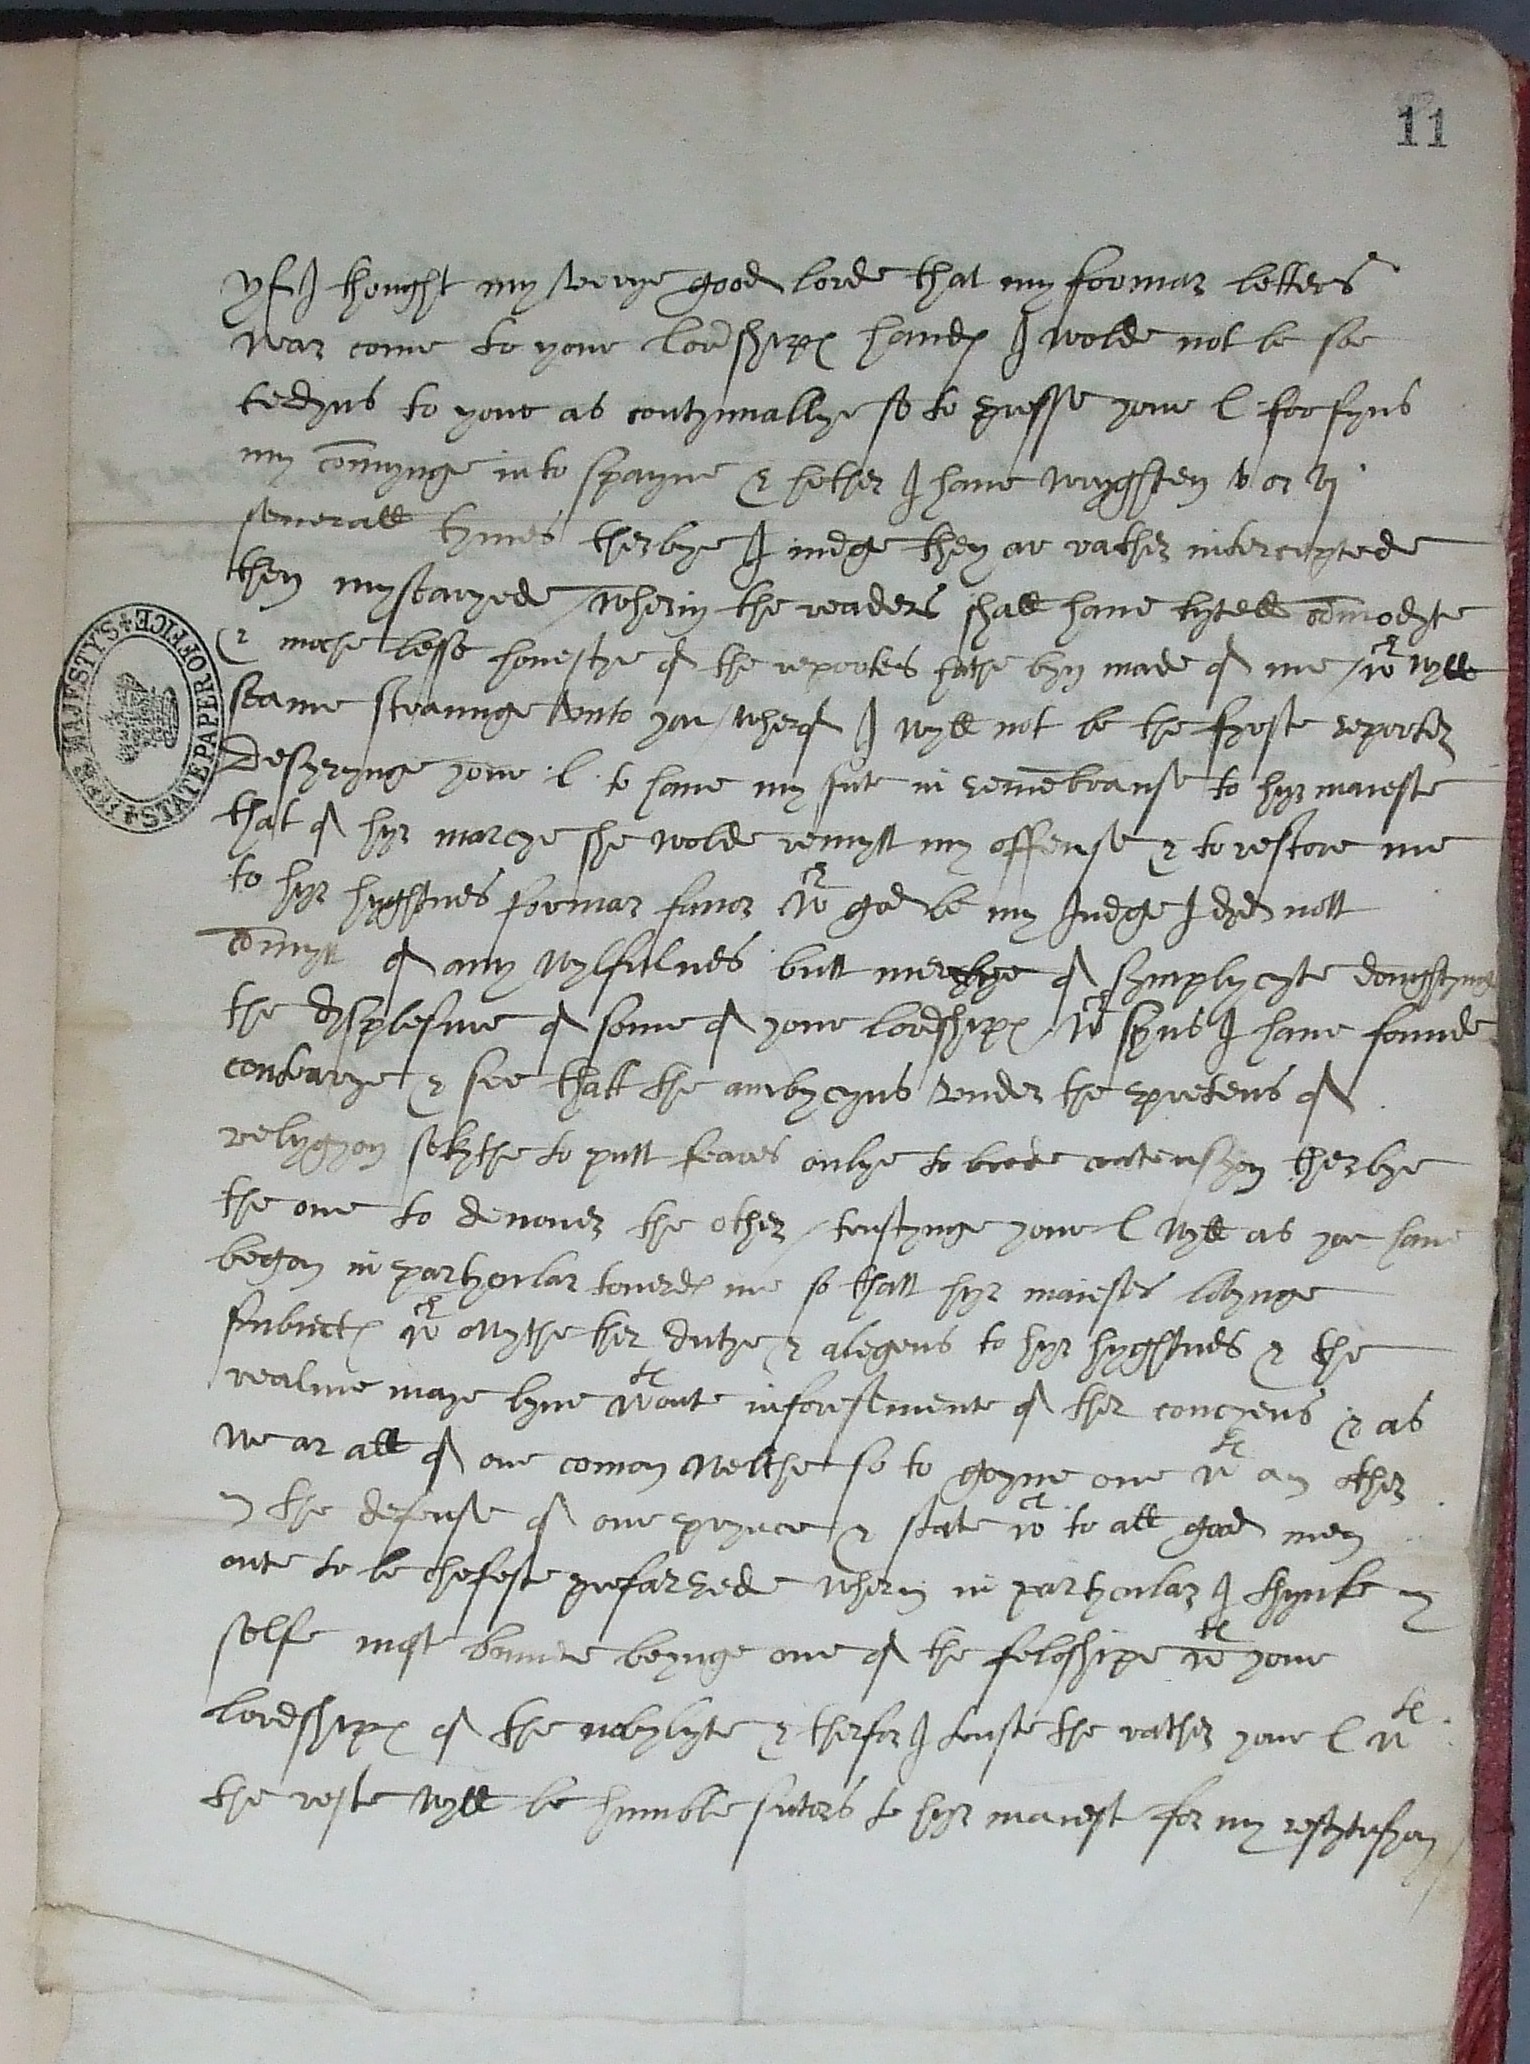 11
yf I thought my verye good lorde that my formar letters
war come to youre lordships hands I wolde not be soe
tedyus to youe as contynuallye so to presse youre l. for syns
my comynge into spayne & hether I have wryghten v or vj
severall tymes therbye I iudge they ar rather intercepted
then myscaryede / wherin the readers shall have lytell comodyte
& moche lesse honestye of the reportes hathe byn made of me / wch wyll
seame straunge unto you / wherof I wyll not be the fyrste reporter
Desyrynge youre .l. to have my sute in remembranse to hyr maieste
that of hyr marcye she wolde remytt my offense & to restore me
to hyr hyghtnes formar favor wch god be my Iudge I dyd nott
comytt of any wylfulnes butt merelye of symplycyte doughtynge
the dysplesure of some of youre lordships / wch syns I have founde
contrarye & see thatt the ambycyus under the pretens of
relygyon sekythe to putt feares onlye to brede contensyon therbye
the one to devouer the other / trustynge youre l wyll as you have
begon in partycular towerds me so thatt hyr maiestes lovynge
subiects wch owythe ther dutye & alegens to hyr hyghtnes & the
realme maye lyve wthoute inforsemente of ther concyens & as
we ar all of one comon welthe so to goyne one wth an other
in the defense of oure prynce & state wch to all good men
oute to be chefeste prefarrede wherin in partycular I thynke my
selfe most bounde beynge one of the feloshipe wth youre
lordships of the nobylyte & therfor I truste the rather youre l wth
the reste wyll be humble sutors to hyr maiest for my restytusyon
HER MAJESTY'S STATE PAPER OFFICE